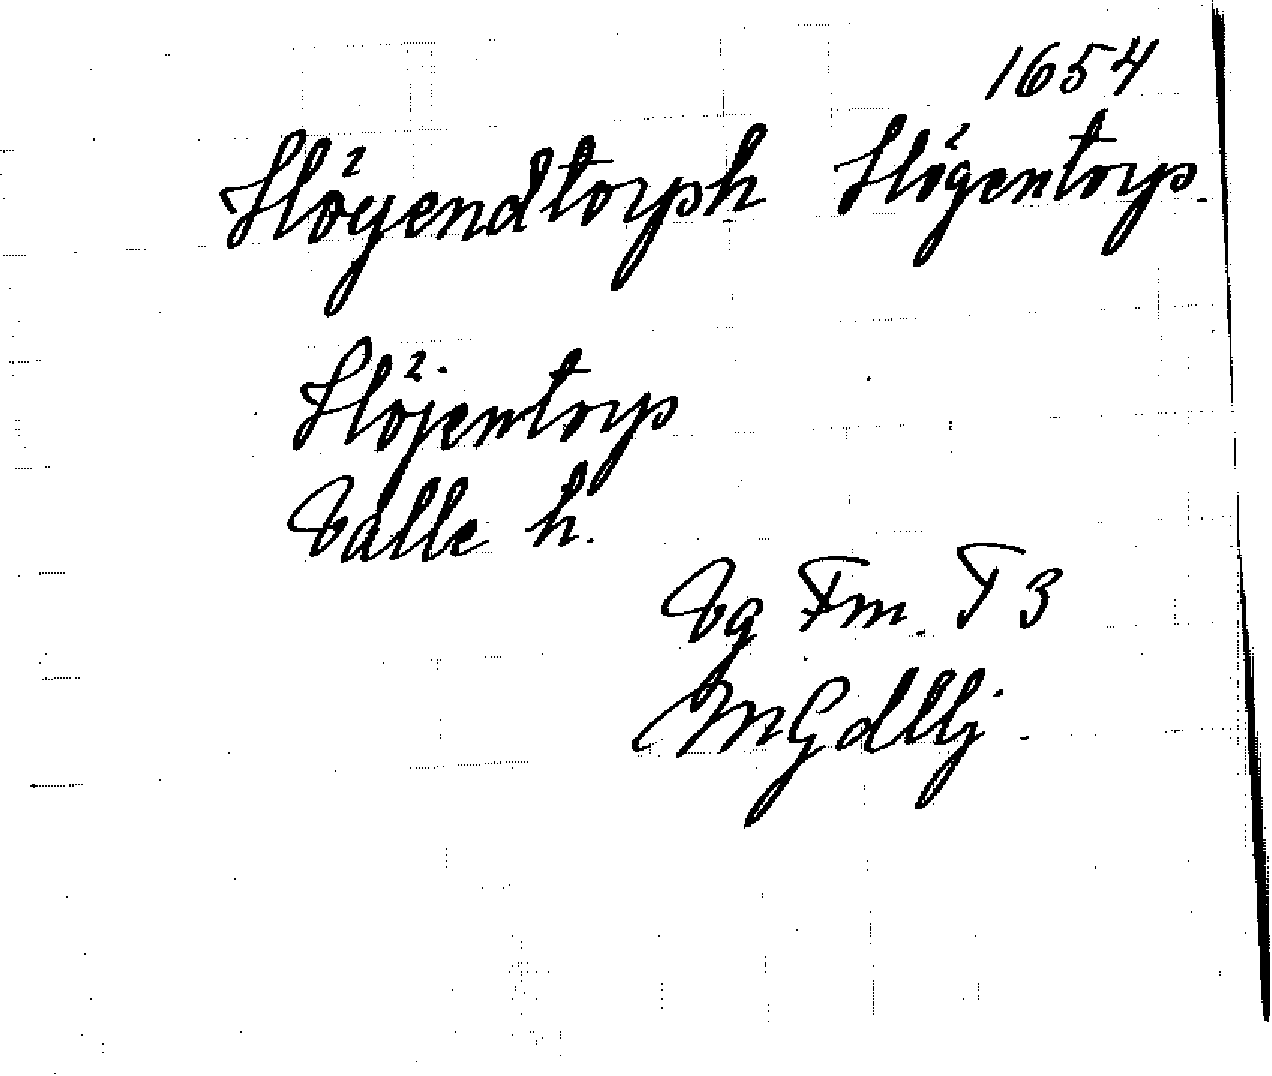 1654
Högendtorph Högentorp.
Höjentorp
Valle h.
Vg Fm. T 3
MGdllj.